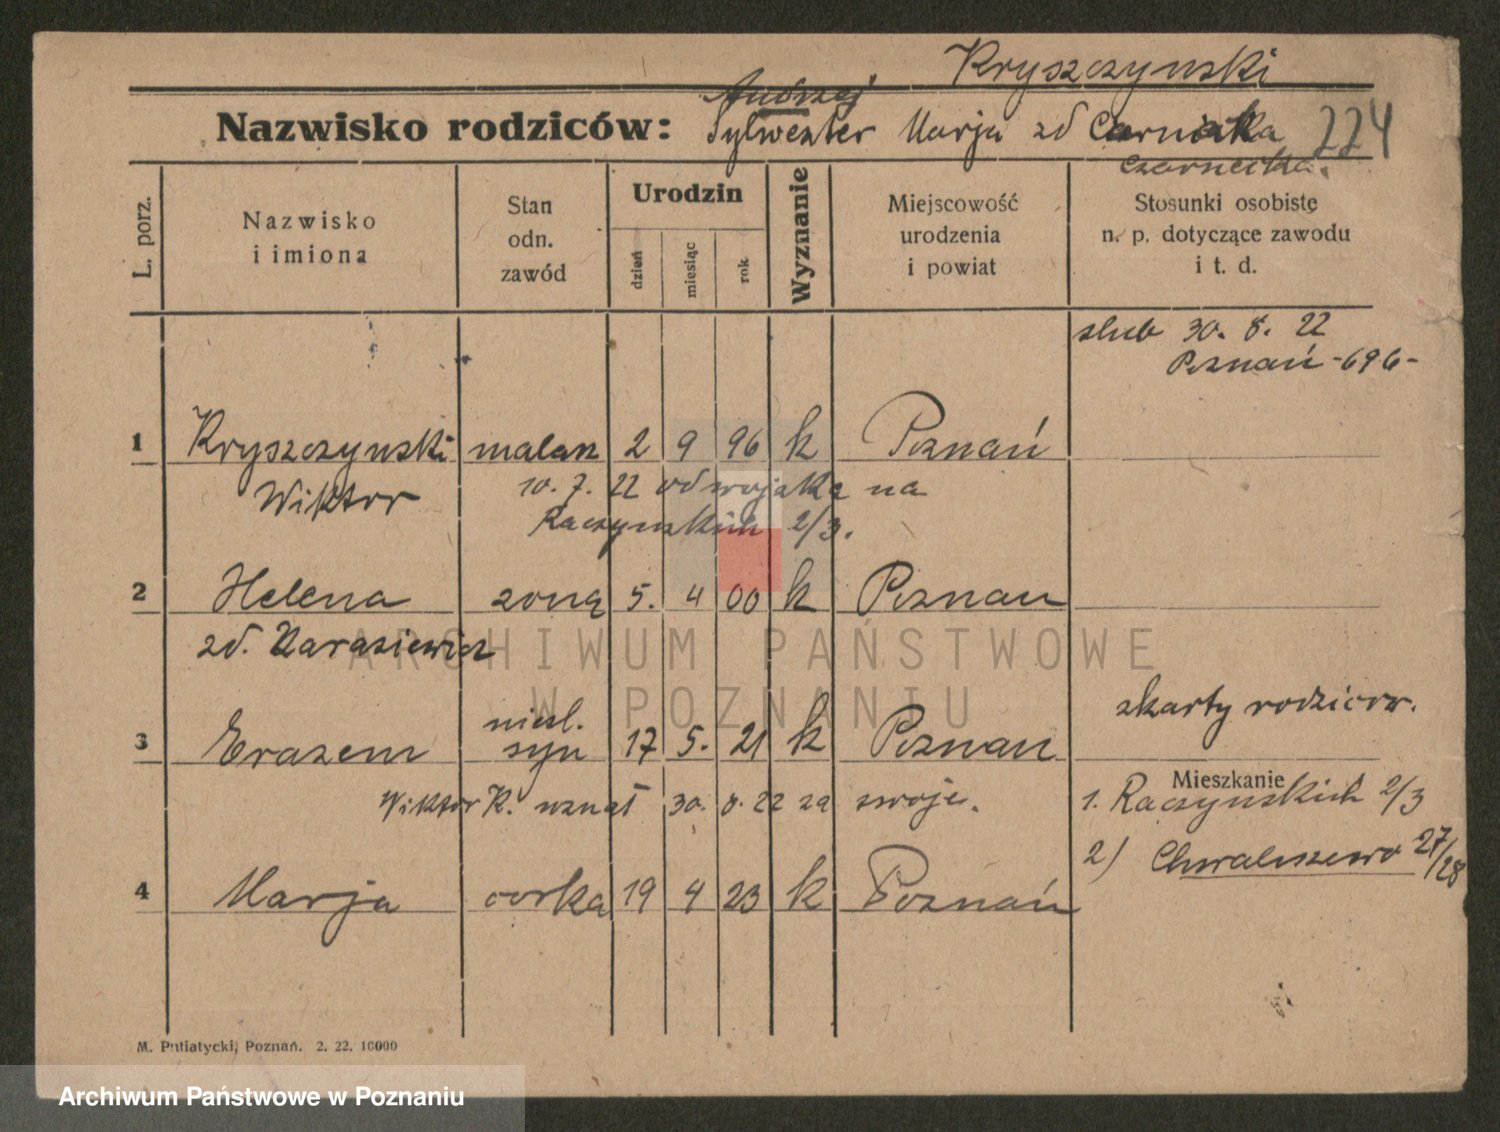 Kryszczynski
Andrzej
Nazwisko rodziców: Sylwester Marja zd Czarnecka 224
L. porz.
Nazwisko
i imiona
Stan
odn.
zawód
Urodzin
dzień
miesiąc
rok
Wyznanie
Miejscowość
urodzenia
i powiat
Stosunki osobiste
n. p. dotyczące zawodu
i t. d.
slub 30. 8. 22
Poznań -696-
1 Kryszczynski malarz 2 9 96 k Poznań
Wiktor 10. 7. 22 od wojska na
Raczynskich 2/3.
2 Helena zona 5. 4 00 k Poznan
zd.
z karty rodzicow.
3 Erazem niesl. syn 17 5. 21 k Poznan
Mieszkanie
Wiktor K. uznał 30. 8. 22 za swoje. 1. Raczynskich 2/3
2) Chwaliszewo 27/28
4 Marja corka 19 4 23 k Poznań
M. Putiatycki, Poznań. 2. 22. 10000
ARCHIWUM PAŃSTWOWE
W POZNANIU
Archiwum Państwowe w Poznaniu